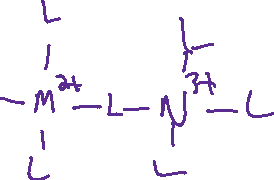 L L
M 2+ L N 3+ L
L L